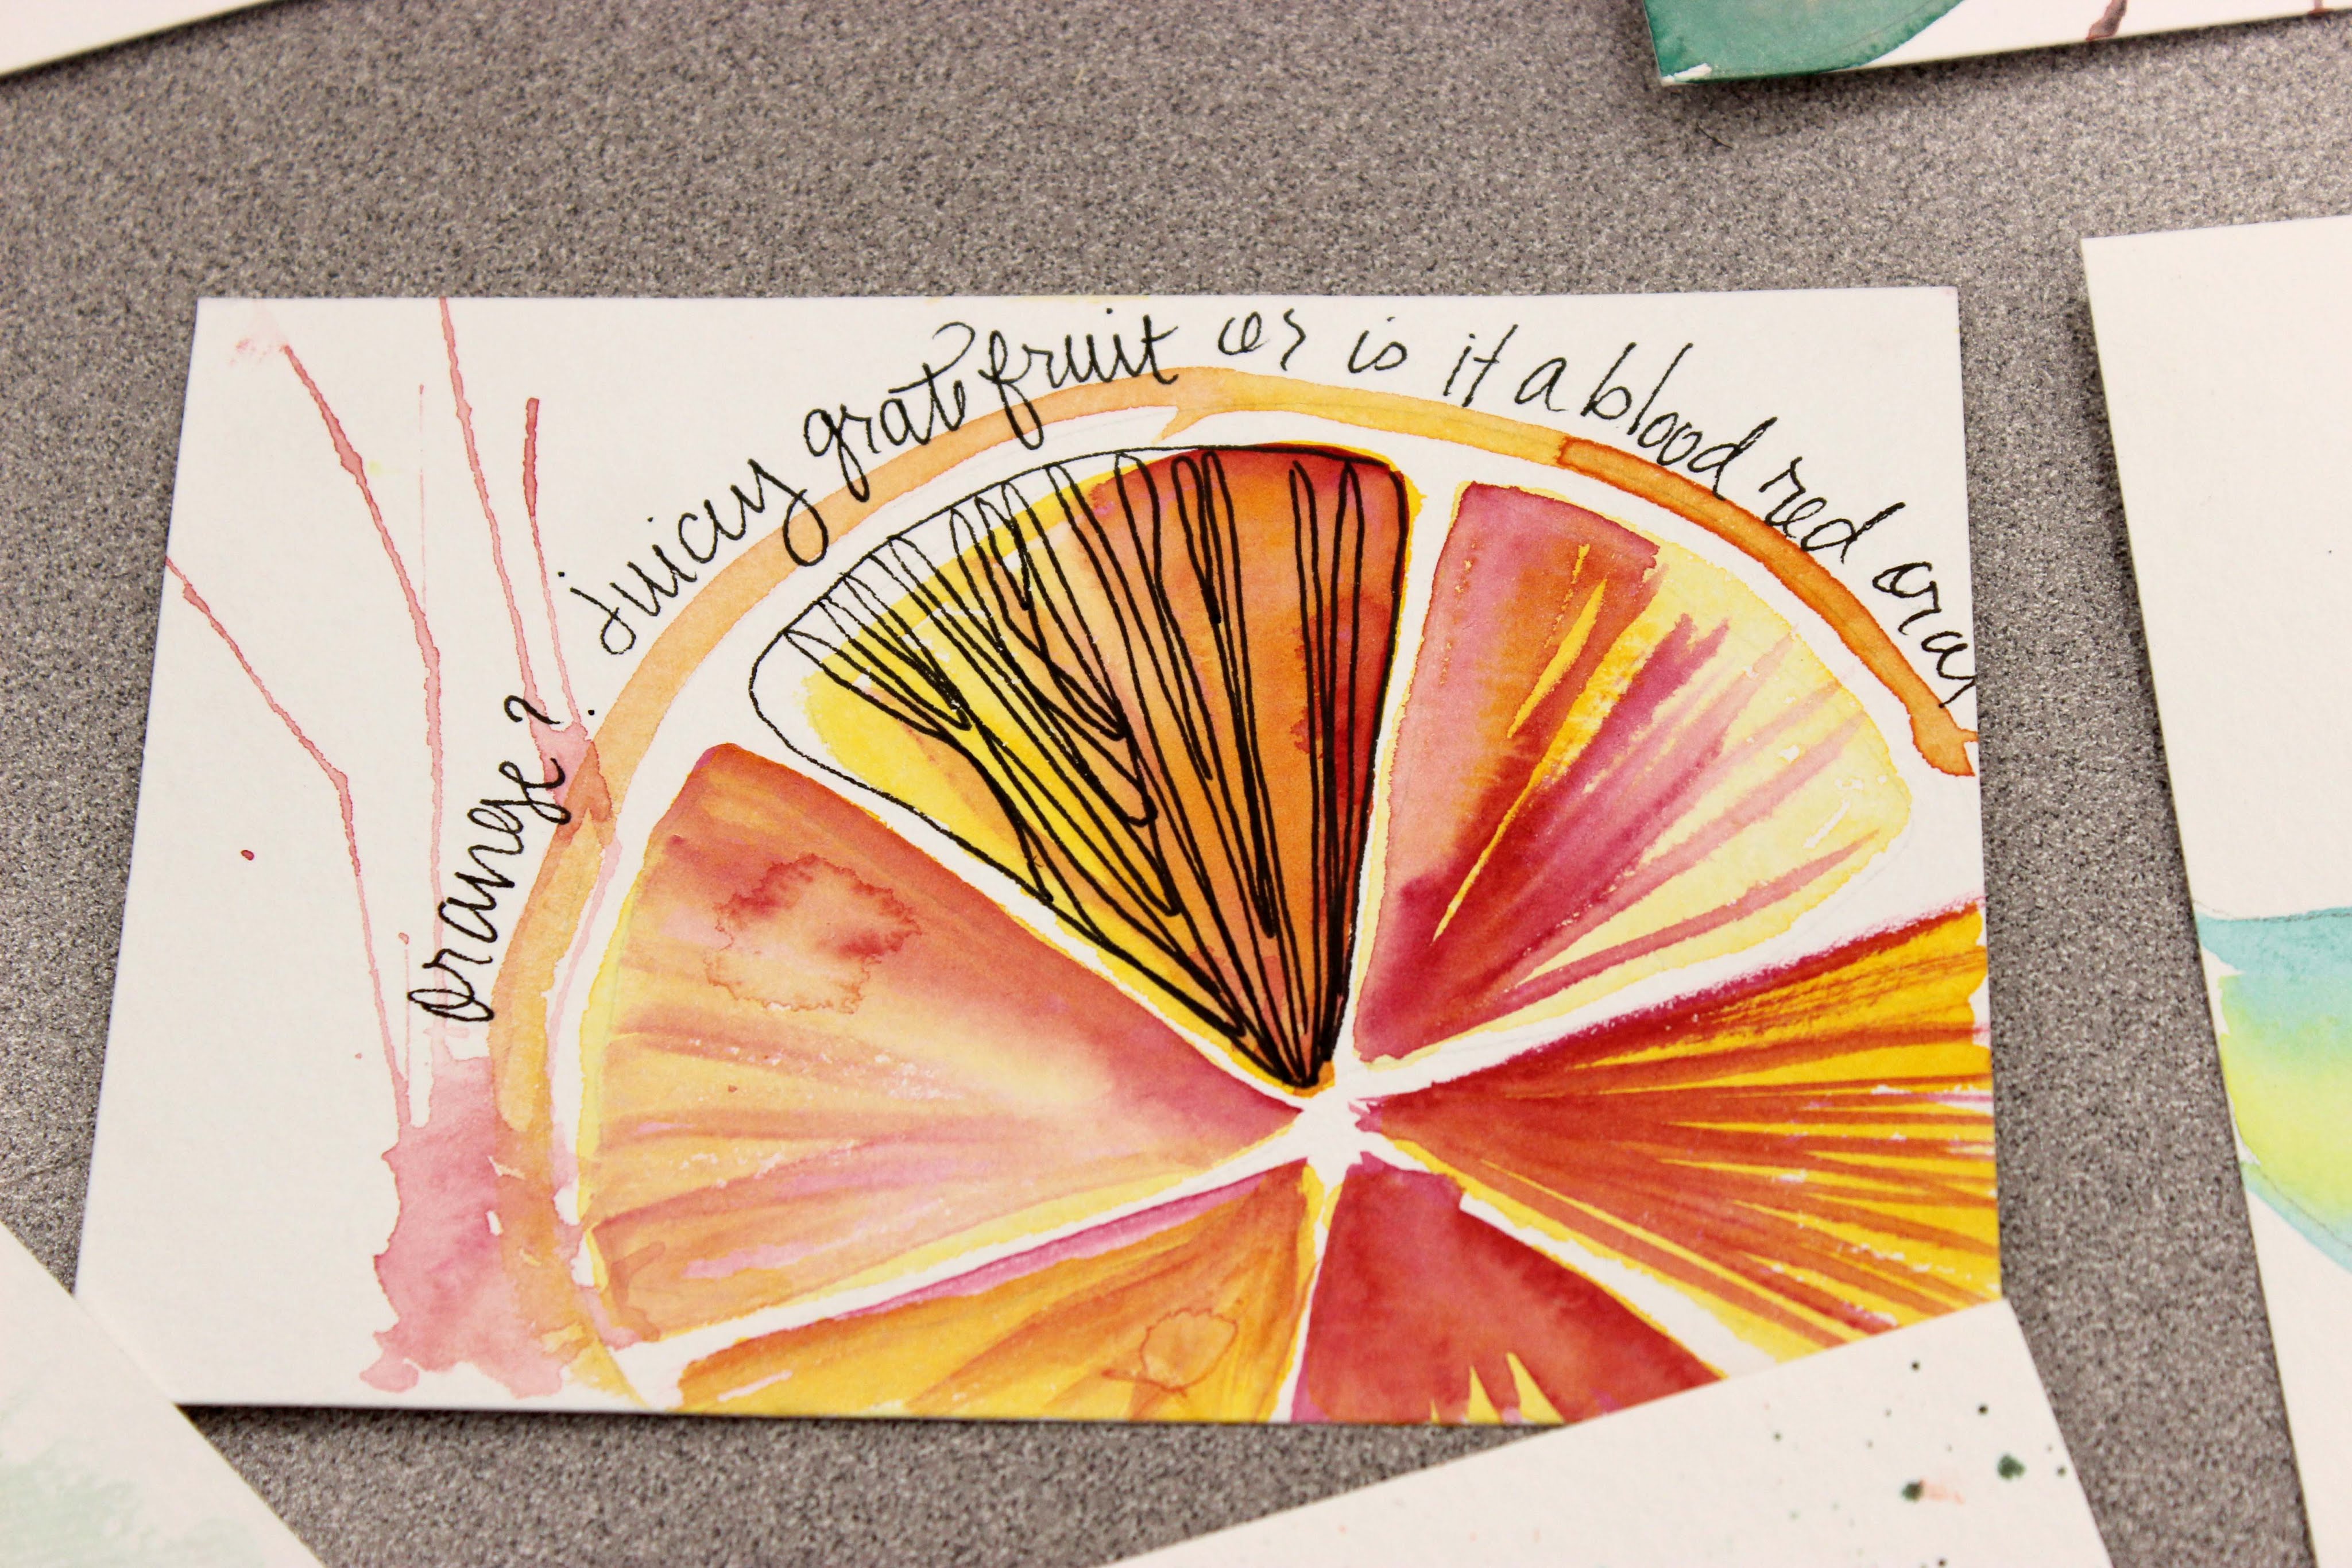 orange? Juicy gratefruit or is it a blood red oran